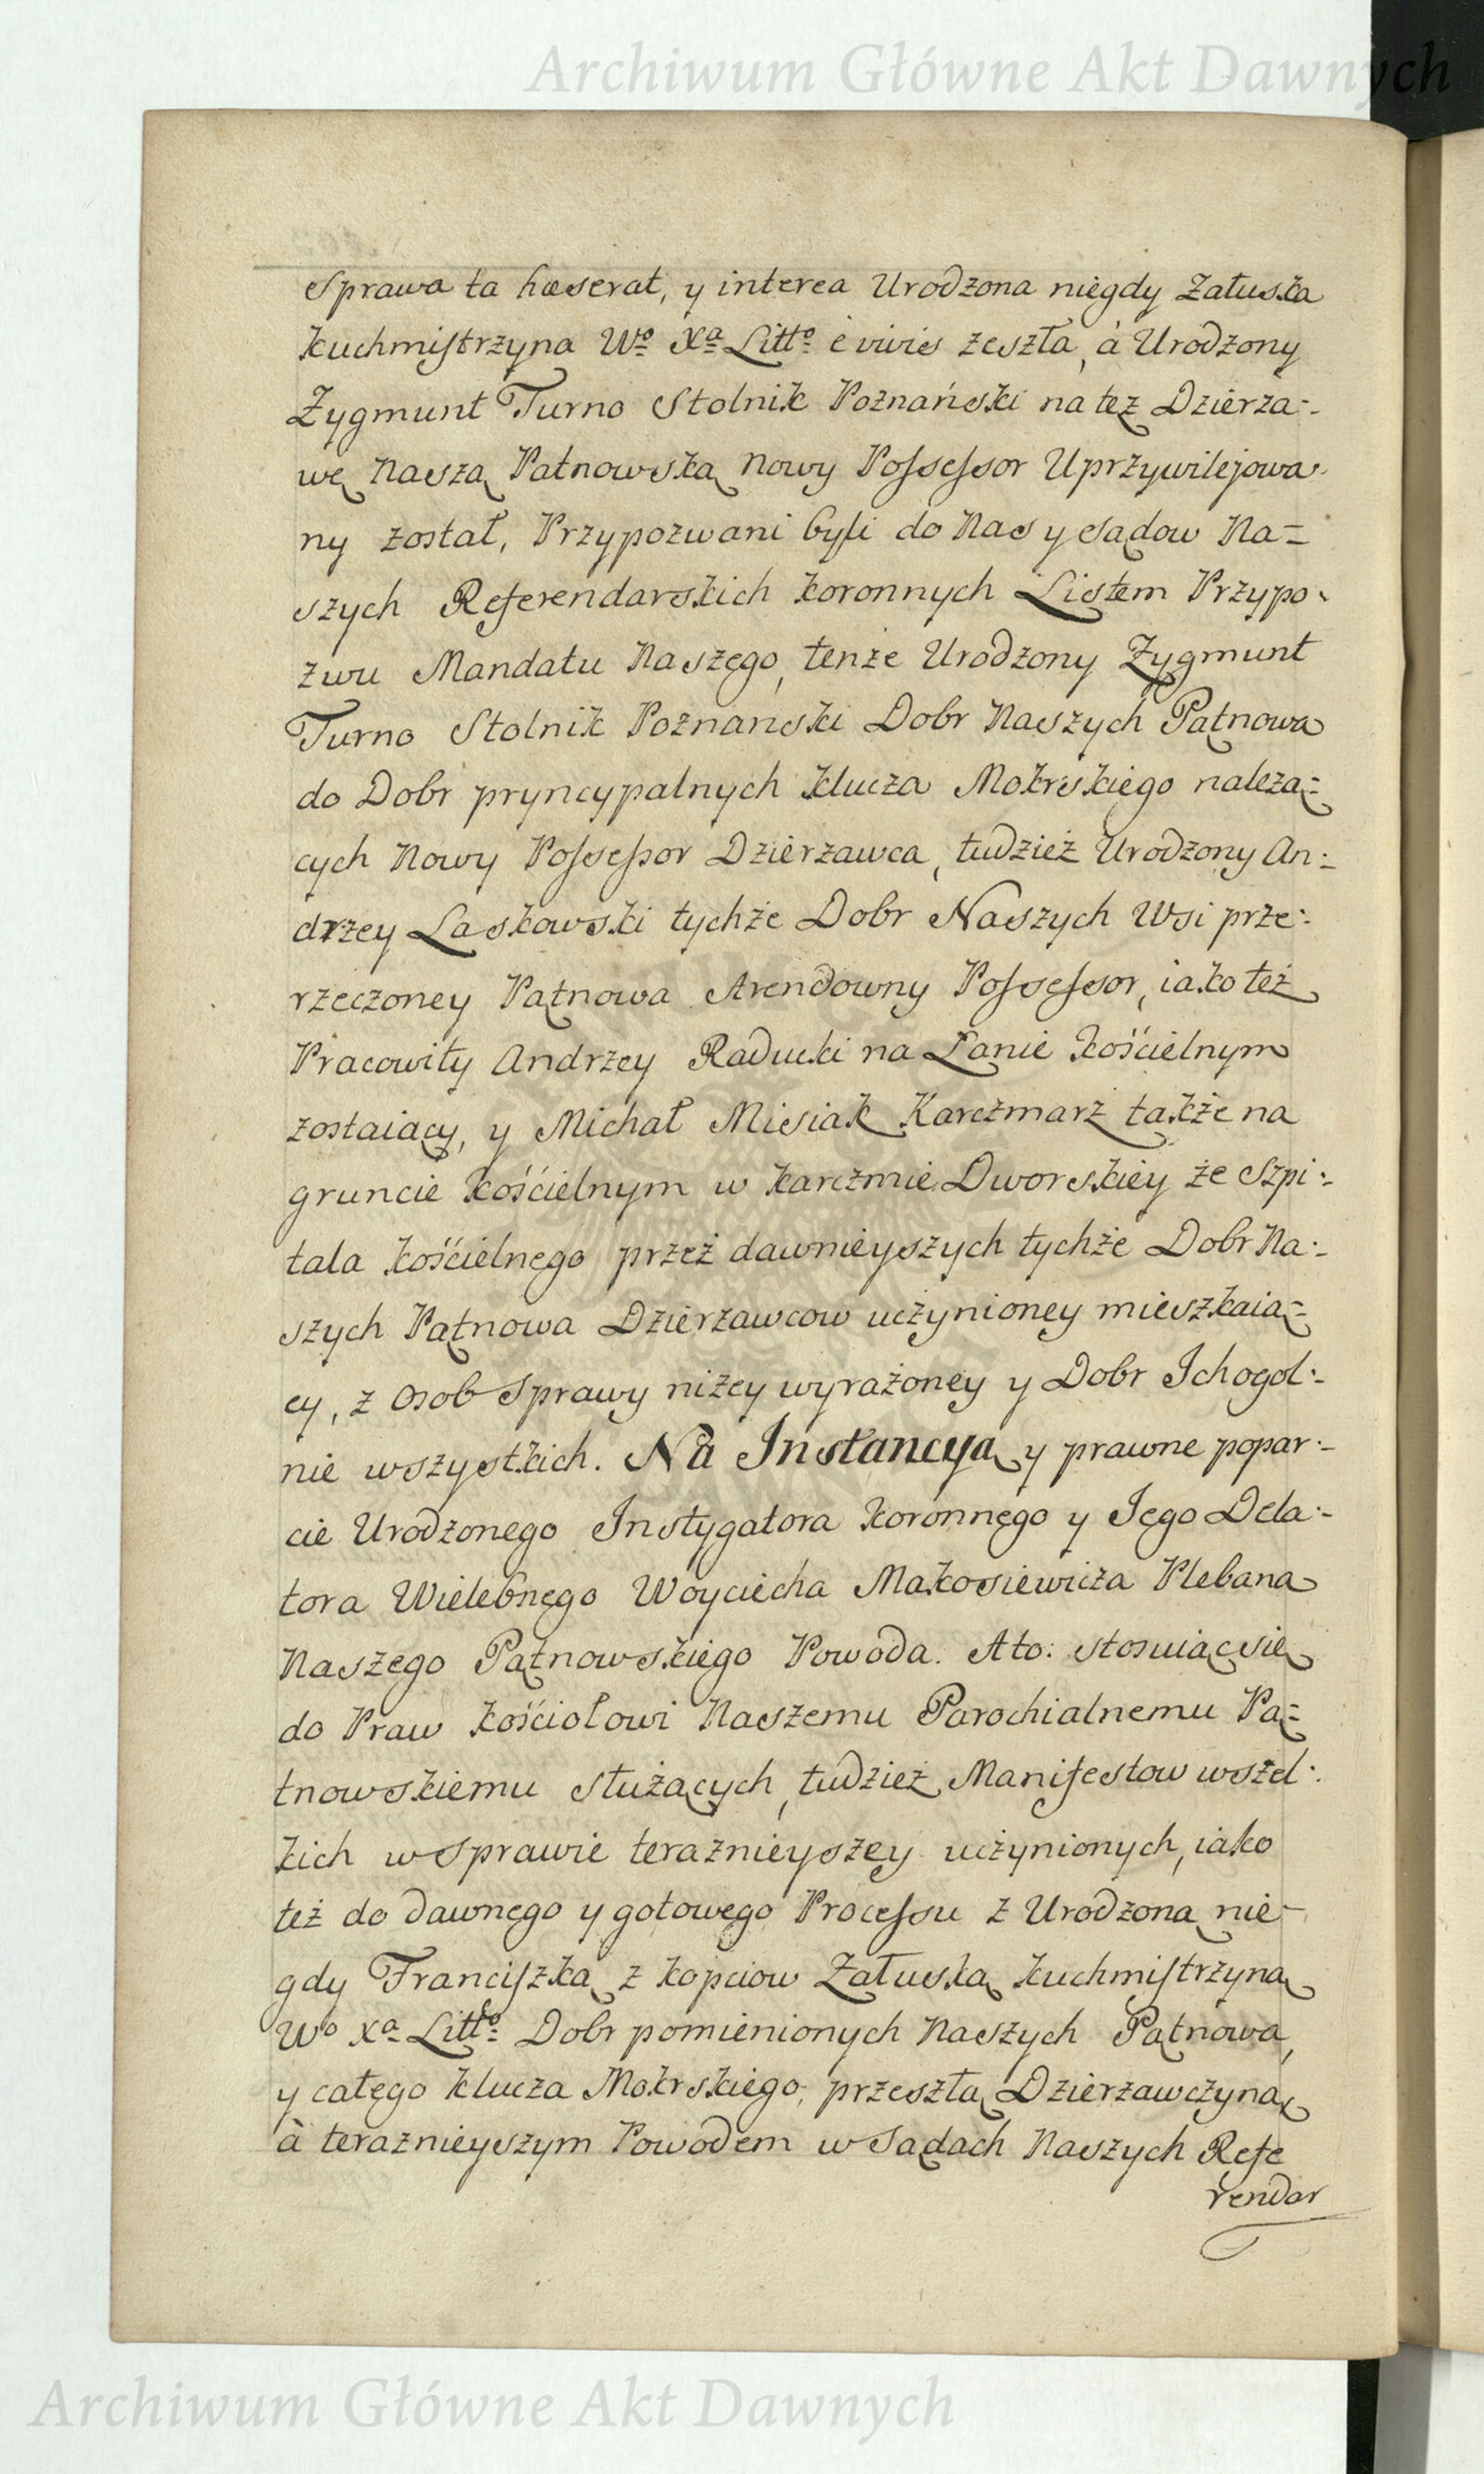 Archiwum Główne Akt Dawnych
Sprawa ta hæserat, y interea Urodzona niegdy Załuska
kuchmistrzyna Wo Xa Litto è vivis zeszła, à Urodzony
Zygmunt Turno Stolnik Poznański na też Dzierża-
wę Naszą Pątnowską Nowy Possessor Uprzywilejowa-
ny został, Przypozwani byli do Nas y Sądow Na=
szych Referendarskich koronnych Listem Przypo-
zwu Mandatu Naszego, tenże Urodzony Zygmunt
Turno Stolnik Poznanski Dobr Naszych Pątnowa
do Dobr pryncypalnych klucza Mokrskiego należą=
cych Nowy Possessor Dzierzawca, tudzież Urodzony An-
drzey Laskowski tychże Dobr Naszych Wsi prze-
rzeczoney Pątnowa Arendowny Possessor, iako też
Pracowity Andrzey Raducki na Łanie kościelnym
zostaiący, y Michał Misiak Karczmarz także na
gruncie kościelnym w karczmie Dworskiey ze Szpi-
tala kościelnego przez dawnieyszych tychże Dobr Na-
szych Pątnowa Dzierzawcow uczynioney mieszkaią=
cy, z Osob Sprawy niżey wyrażoney y Dobr Ich ogol-
nie wszystkich. Na Instancyą y prawne popar-
cie Urodzonego Instygatora koronnego y Jego Dela-
tora Wielebnego Woyciecha Makosiewicza Plebana
Naszego Pątnowskiego Powoda. A to: stosuiąc się
do Praw kościołowi Naszemu Parochialnemu Pą=
tnowskiemu służących, tudzież Manifestow wszel-
kich w Sprawie teraznieyszey uczynionych, iako
też do dawnego y gotowego Processu z Urodzoną nie-
gdy Franciszką z kopciow Załuską kuchmistrzyną
Wo Xa Litto Dobr pomienionych Naszych Pątnowa,
y całego klucza Mokrskiego, przeszłą Dzierzawczyną
à teraznieyszym Powodem w Sądach Naszych Refe
rendar
Archiwum Główne Akt Dawnych